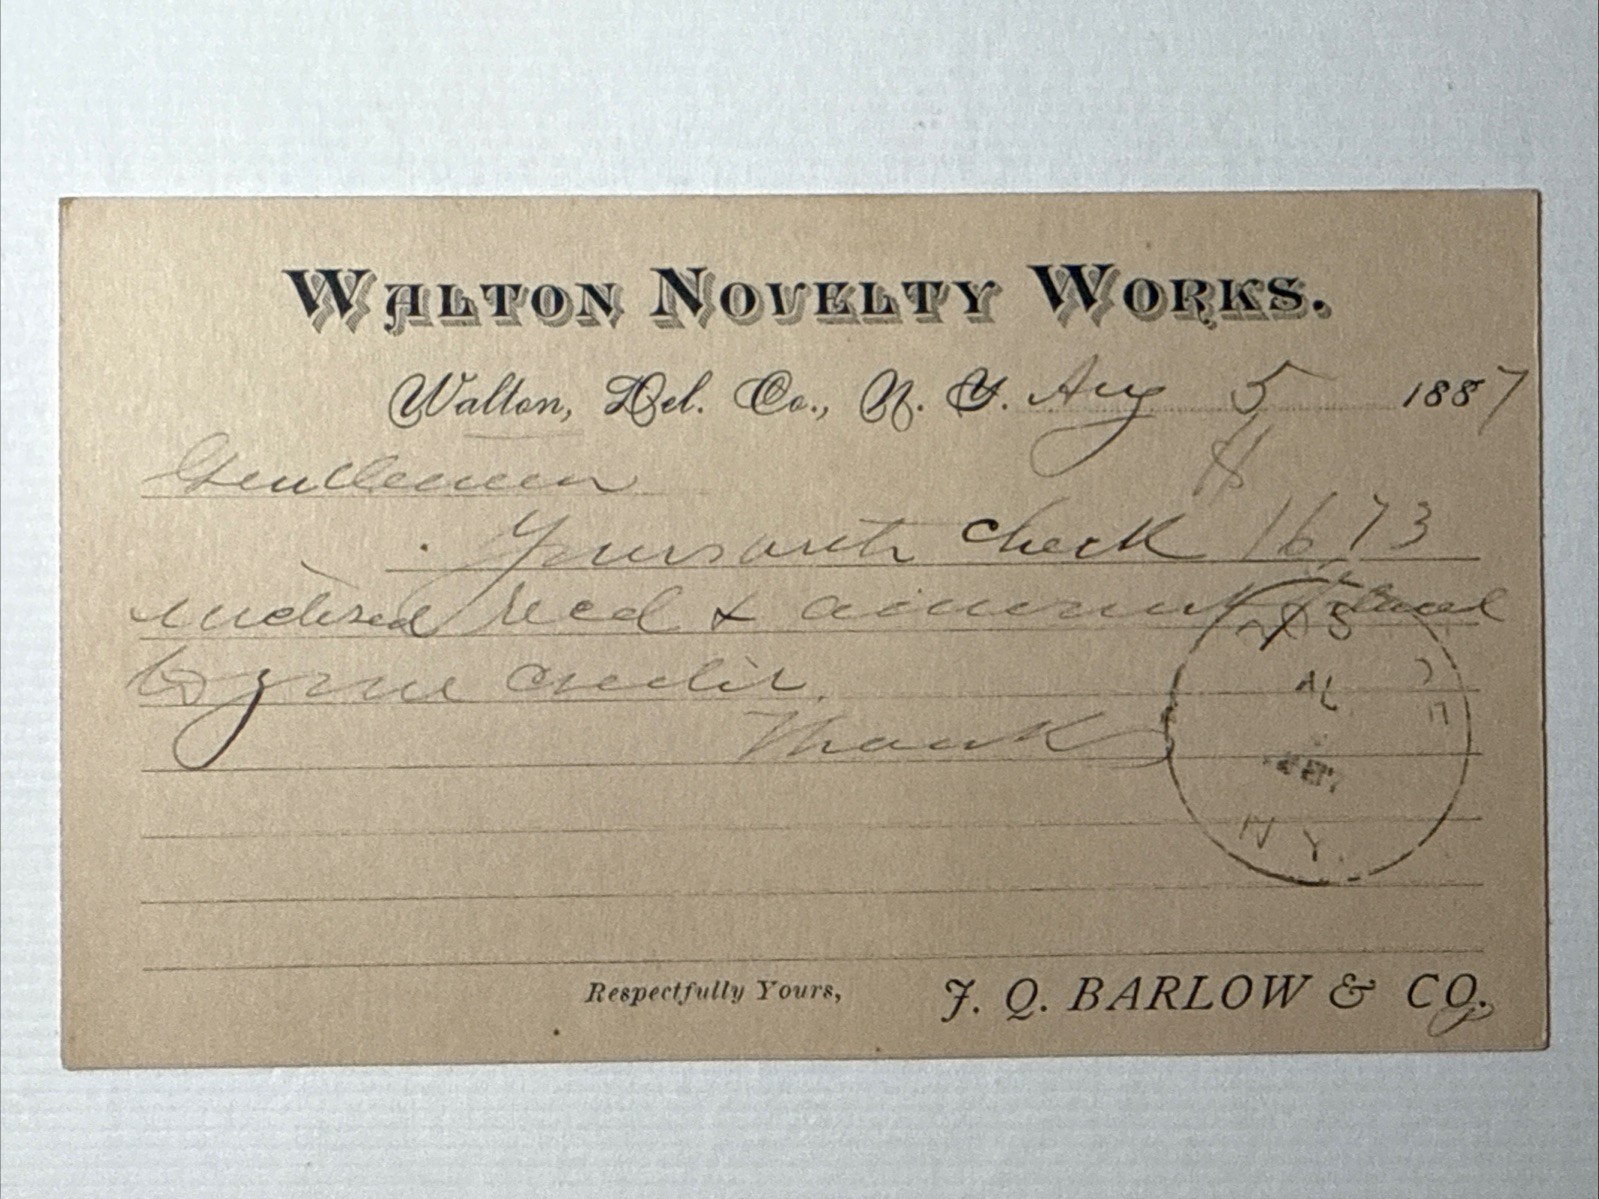 WALTON NOVELTY WORKS.
Walton, Del. Co., N. Y. Aug 5 1887
Gentlemen
$
Yours with check 1673
enclosed recd & amount placed
to your credit.
Thanks
N Y.
Respectfully Yours, J. Q. BARLOW & CO.